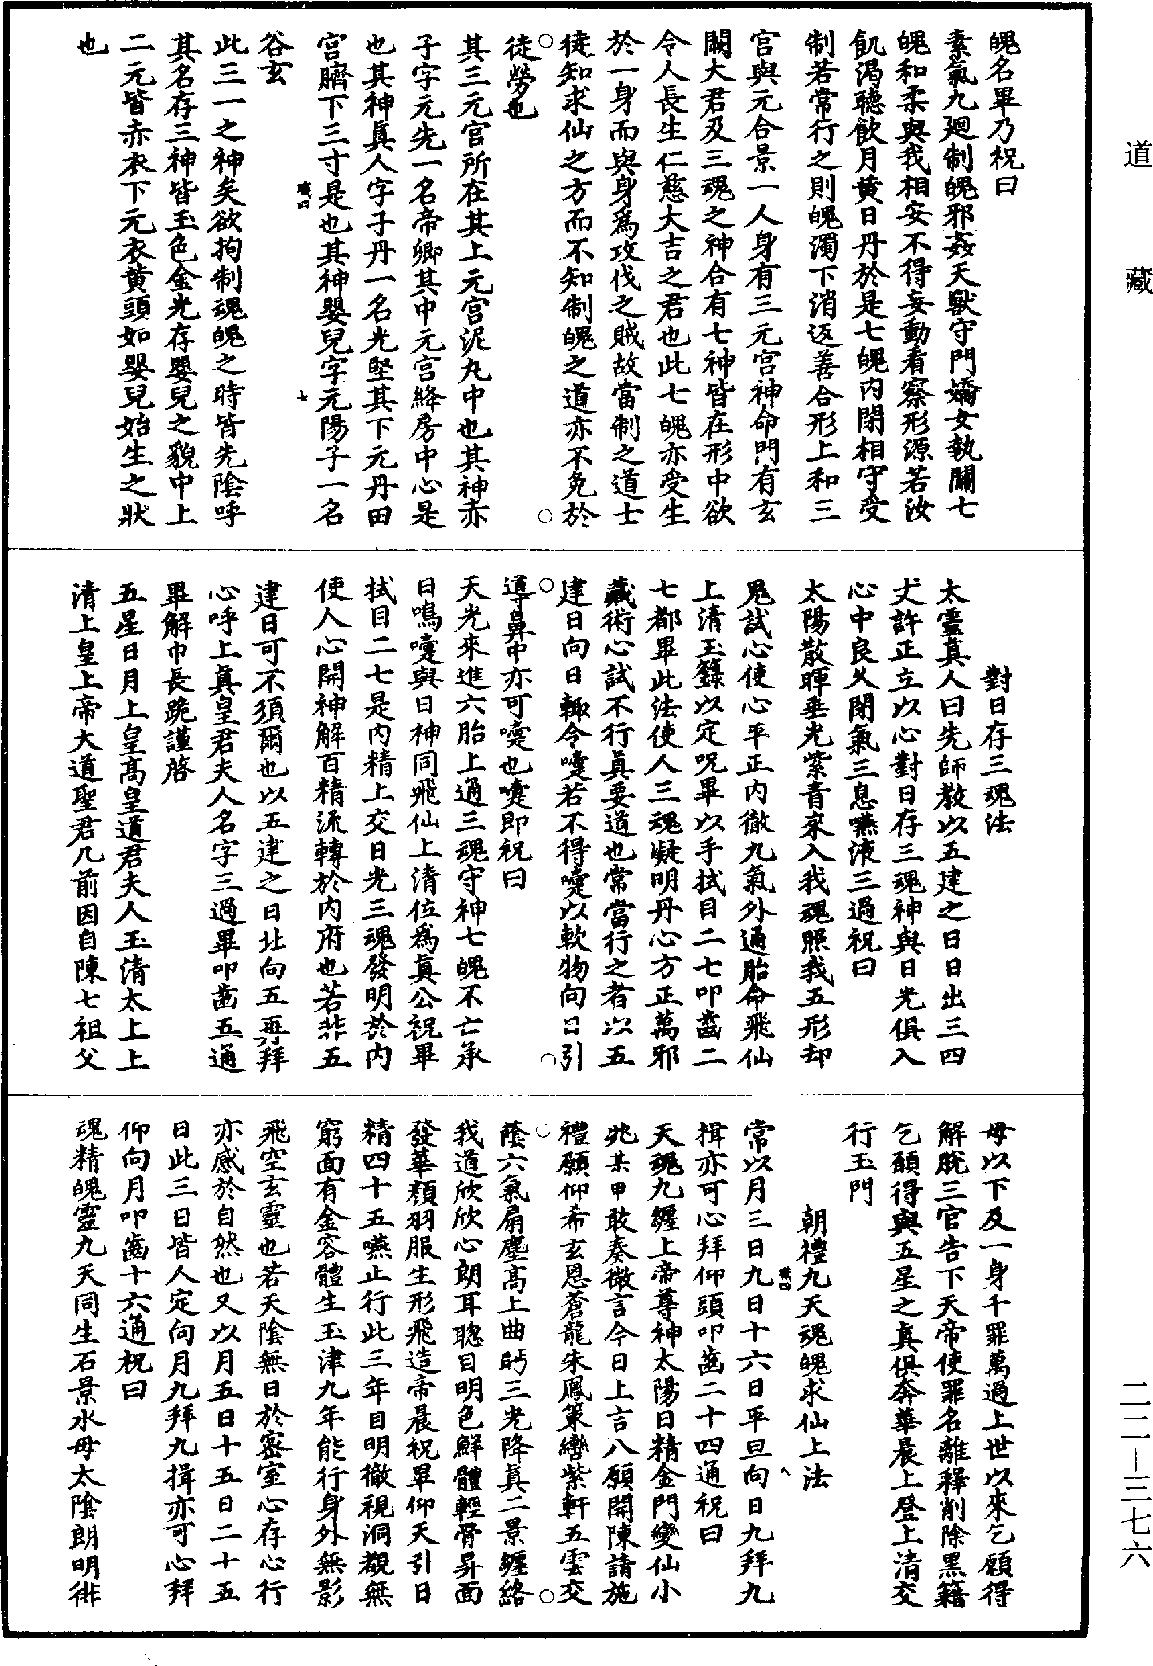 道藏
二二—三七六
魄名畢乃祝曰
素氣九廻制魄邪姦天獸守門嬌女執關七
魄和柔與我相安不得妄動看察形源若汝
飢渴聽飲月黄日丹於是七魄內閉相守受
制若常行之則魄濁下消返善合形上和三
宮與元合景一人身有三元宮神命門有玄
關大君及三魂之神合有七神皆在形中欲
令人長生仁慈大吉之君也此七魄亦受生
於一身而與身爲攻伐之賊故當制之道士
徒知求仙之方而不知制魄之道亦不免於
徒勞也
其三元宮所在其上元宮泥丸中也其神赤
子字元先一名帝卿其中元宮絳房中心是
也其神眞人字子丹一名光堅其下元丹田
宮臍下三寸是也其神嬰兒字元陽子一名
谷玄
此三一之神矣欲拘制魂魄之時皆先陰呼
其名存三神皆玉色金光存嬰兒之貌中上
二元皆赤衣下元衣黄頭如嬰兒始生之狀
也
對日存三魂法
太靈真人曰先師教以五建之日日出三四
丈許正立以心對日存三魂神與日光俱入
心中良久閉氣三息嚥液三過祝曰
太陽散暉垂光紫青來入我魂照我五形却
鬼試心使心平正內徹九氣外通胎命飛仙
上清玉籙以定呪畢以手拭目二七叩齒二
七都畢此法使人三魂凝明丹心方正萬邪
藏術心試不行眞要道也常當行之者以五
建日向日輙令嚏若不得嚏以軟物向日引
導鼻中亦可嚏也嚏即祝曰
天光來進六胎上通三魂守神七魄不亡承
日鳴嚏與日神同飛仙上清位爲眞公祝畢
拭目二七是內精上交日光三魂發明於內
使人心開神解百精流轉於內府也若非五
建日可不須爾也以五建之日北向五再拜
心呼上真皇君夫人名字三過畢叩齒五通
畢解巾長跪謹啓
五星日月上皇高皇道君夫人玉清太上上
清上皇上帝大道聖君几前因自陳七祖父
母以下及一身千罪萬過上世以來乞願得
解脫三官告下天帝使罪名離釋削除黑籍
乞願得與五星之真俱奔華晨上登上清交
行玉門
朝禮九天魂魄求仙上法
常以月三日九日十六日平旦向日九拜九
揖亦可心拜仰頭叩齒二十四通祝曰
天魂九纏上帝尊神太陽日精金門變仙小
兆某甲敢奏微言今日上言八願開陳請施
禮願仰希玄恩蒼龍朱鳳策轡紫軒五雲交
蔭六氣扇塵高上曲眄三光降真二景纏絡
我道欣欣心朗耳聰目明色鮮體輕骨昇面
發華顏羽服生形飛造帝晨祝畢仰天引日
精四十五嚥止行此三年目明徹視洞覩無
窮面有金容體生玉津九年能行身外無影
飛空玄靈也若天陰無日於密室心存心行
亦感於自然也又以月五日十五日二十五
日此三日皆人定向月九拜九揖亦可心拜
仰向月叩齒十六通祝曰
魂精魄靈九天同生石景水母太陰朗明徘